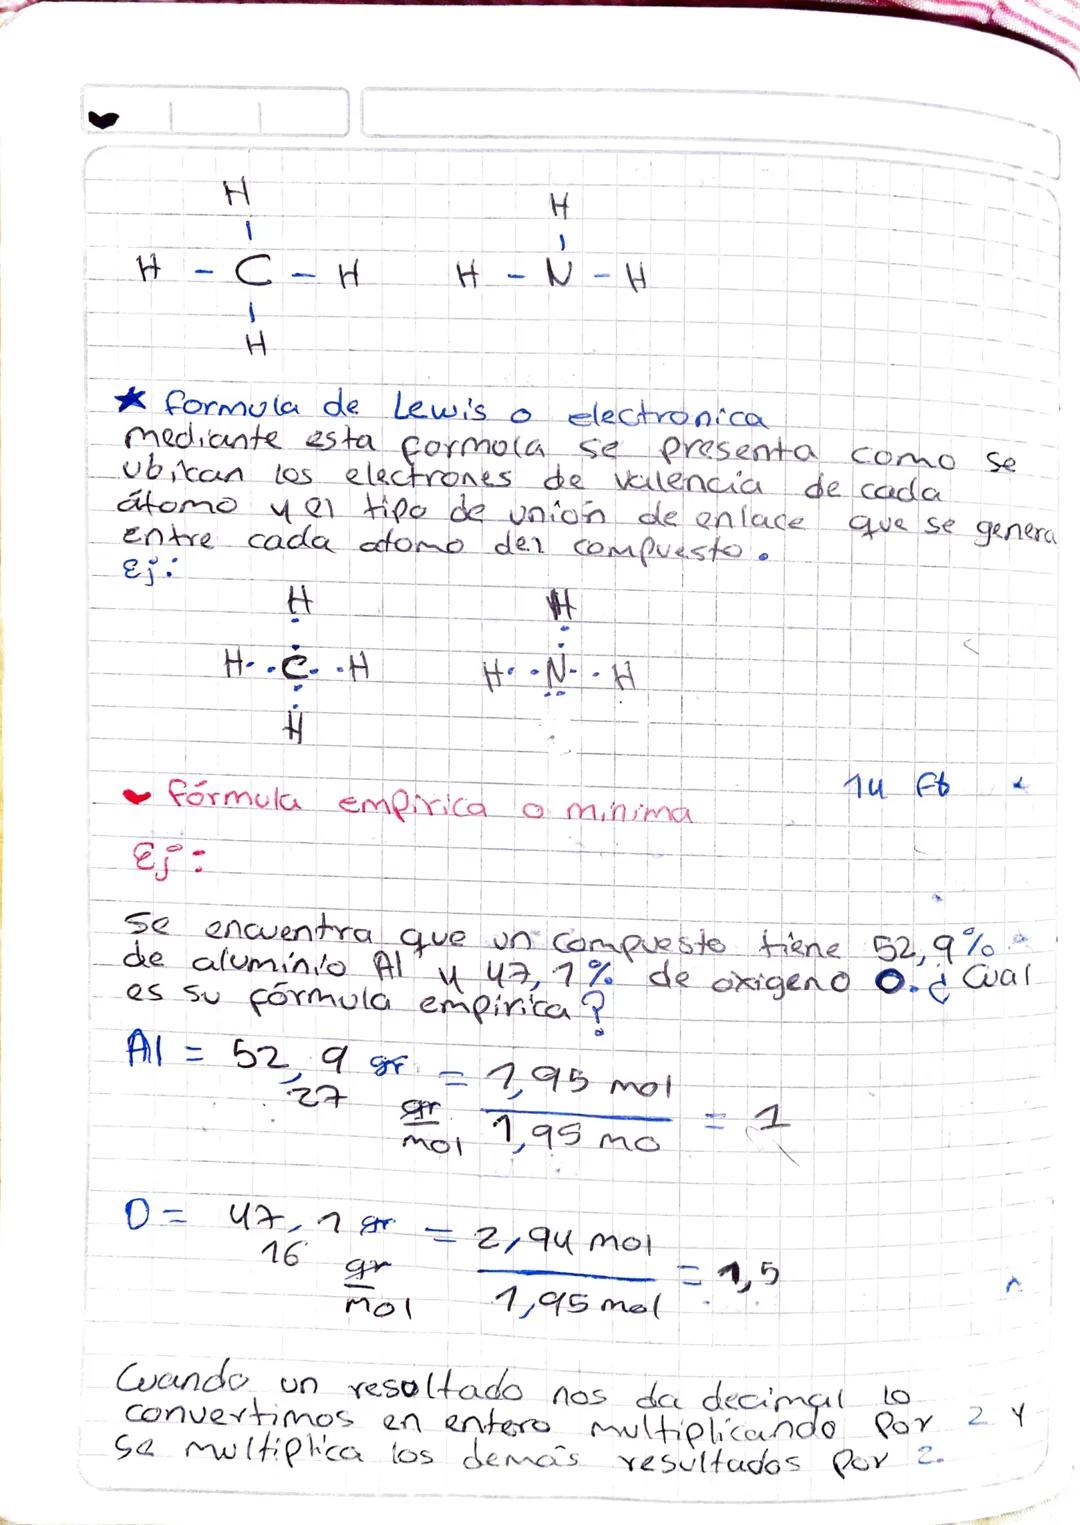 H H
H - C - H H - N - H
H
★ formula de Lewis o electronica
mediante esta formola se presenta como se
ubican los electrones de valencia de cada
átomo y el tipo de unión de enlace que se genera
entre cada atomo del compuesto.
Ej:
H H
H· ·C· ·H H· ·N· ·H
H
14 Ft
fórmula empirica o minima
Ej:
Se encuentra que un compuesto tiene 52,9%
de aluminio Al y 47,1% de oxigeno O. ¿Cual
es su fórmula empirica?
Al = 52,9 gr = 1,95 mol
27 gr/mol 1,95 mo = 1
O = 47,1 gr = 2,94 mol
16 gr/mol 1,95 mol = 1,5
Cuando un resultado nos da decimal lo
convertimos en entero multiplicando por 2 y
se multiplica los demás resultados por 2.